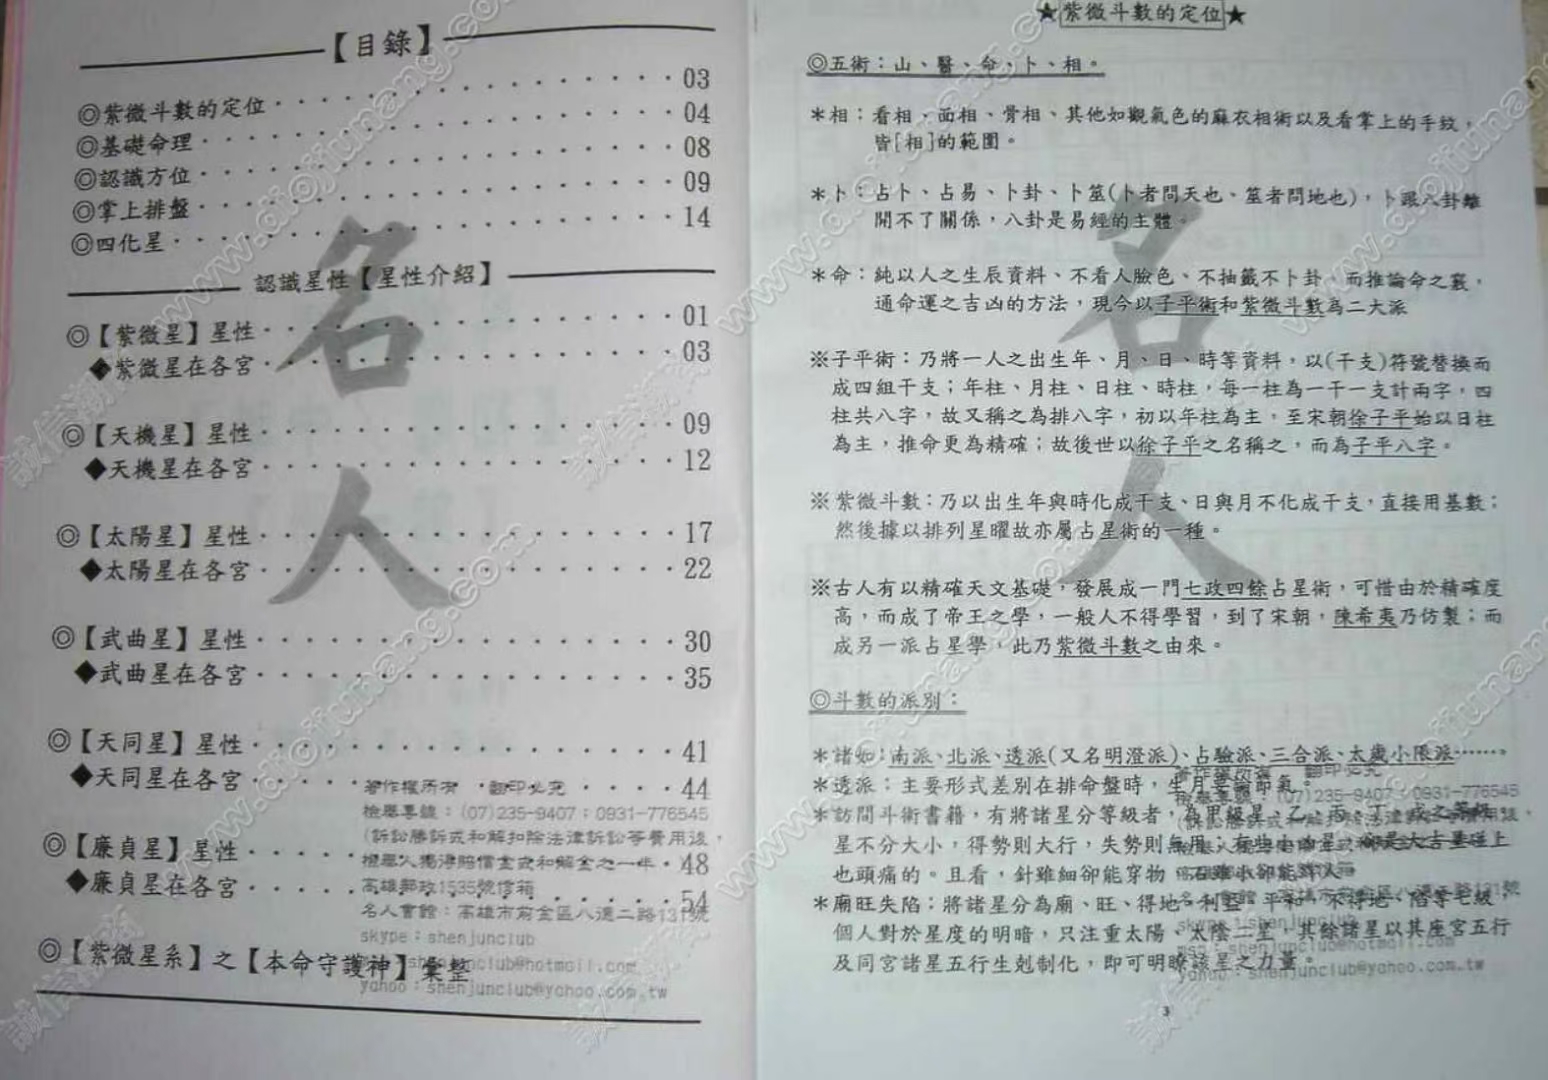 【目錄】
◎紫微斗數的定位 03
◎基礎命理 04
◎認識方位 08
◎掌上排盤 09
◎四化星 14
認識星性【星性介紹】
◎【紫微星】星性 01
◆紫微星在各宮 03
◎【天機星】星性 09
◆天機星在各宮 12
◎【太陽星】星性 17
◆太陽星在各宮 22
◎【武曲星】星性 30
◆武曲星在各宮 35
◎【天同星】星性 41
◆天同星在各宮 44
◎【廉貞星】星性 48
◆廉貞星在各宮 54
◎【紫微星系】之【本命守護神】彙整
名人
著作權所有 翻印必究
檢舉專線：(07)235-9407；0931-776545
(訴訟勝訴或和解扣除法律訴訟等費用後，
檢舉人獨得賠償金或和解金之一半。
高雄郵政1535號信箱
名人會館：高雄市前金區八德二路131號
skype：shenjunclub
yahoo：shenjunclub@yahoo.com.tw
★紫微斗數的定位★
◎五術：山、醫、命、卜、相。
＊相：看相、面相、骨相、其他如觀氣色的麻衣相術以及看掌上的手紋，
皆[相]的範圍。
＊卜：占卜、占易、卜卦、卜筮(卜者問天也、筮者問地也)，卜跟八卦離
開不了關係，八卦是易經的主體。
＊命：純以人之生辰資料、不看人臉色、不抽籤不卜卦，而推論命之衰，
通命運之吉凶的方法，現今以子平術和紫微斗數為二大派
※子平術：乃將一人之出生年、月、日、時等資料，以(干支)符號替換而
成四組干支；年柱、月柱、日柱、時柱，每一柱為一干一支計兩字，四
柱共八字，故又稱之為排八字，初以年柱為主，至宋朝徐子平始以日柱
為主，推命更為精確；故後世以徐子平之名稱之，而為子平八字。
※紫微斗數：乃以出生年與時化成干支、日與月不化成干支，直接用基數；
然後據以排列星曜故亦屬占星術的一種。
※古人有以精確天文基礎，發展成一門七政四餘占星術，可惜由於精確度
高，而成了帝王之學，一般人不得學習，到了宋朝，陳希夷乃仿製；而
成另一派占星學，此乃紫微斗數之由來。
◎斗數的派別：
＊諸如：南派、北派、透派(又名明澄派)、占驗派、三合派、太歲小限派……。
＊透派：主要形式差別在排命盤時，生月要論節氣。
＊訪間斗術書籍，有將諸星分等級者，為甲級星、乙、丙、丁、戊之等級，
星不分大小，得勢則大行，失勢則無用，
也頭痛的。且看，針雖細卻能穿物，石雖小卻能絆人。
＊廟旺失陷：將諸星分為廟、旺、得地、利益、平和、不得地、陷等七級，
個人對於星度的明暗，只注重太陽、太陰二星，其餘諸星以其座宮五行
及同宮諸星五行生剋制化，即可明瞭該星之力量。
3
名人
www.diojiunang.com